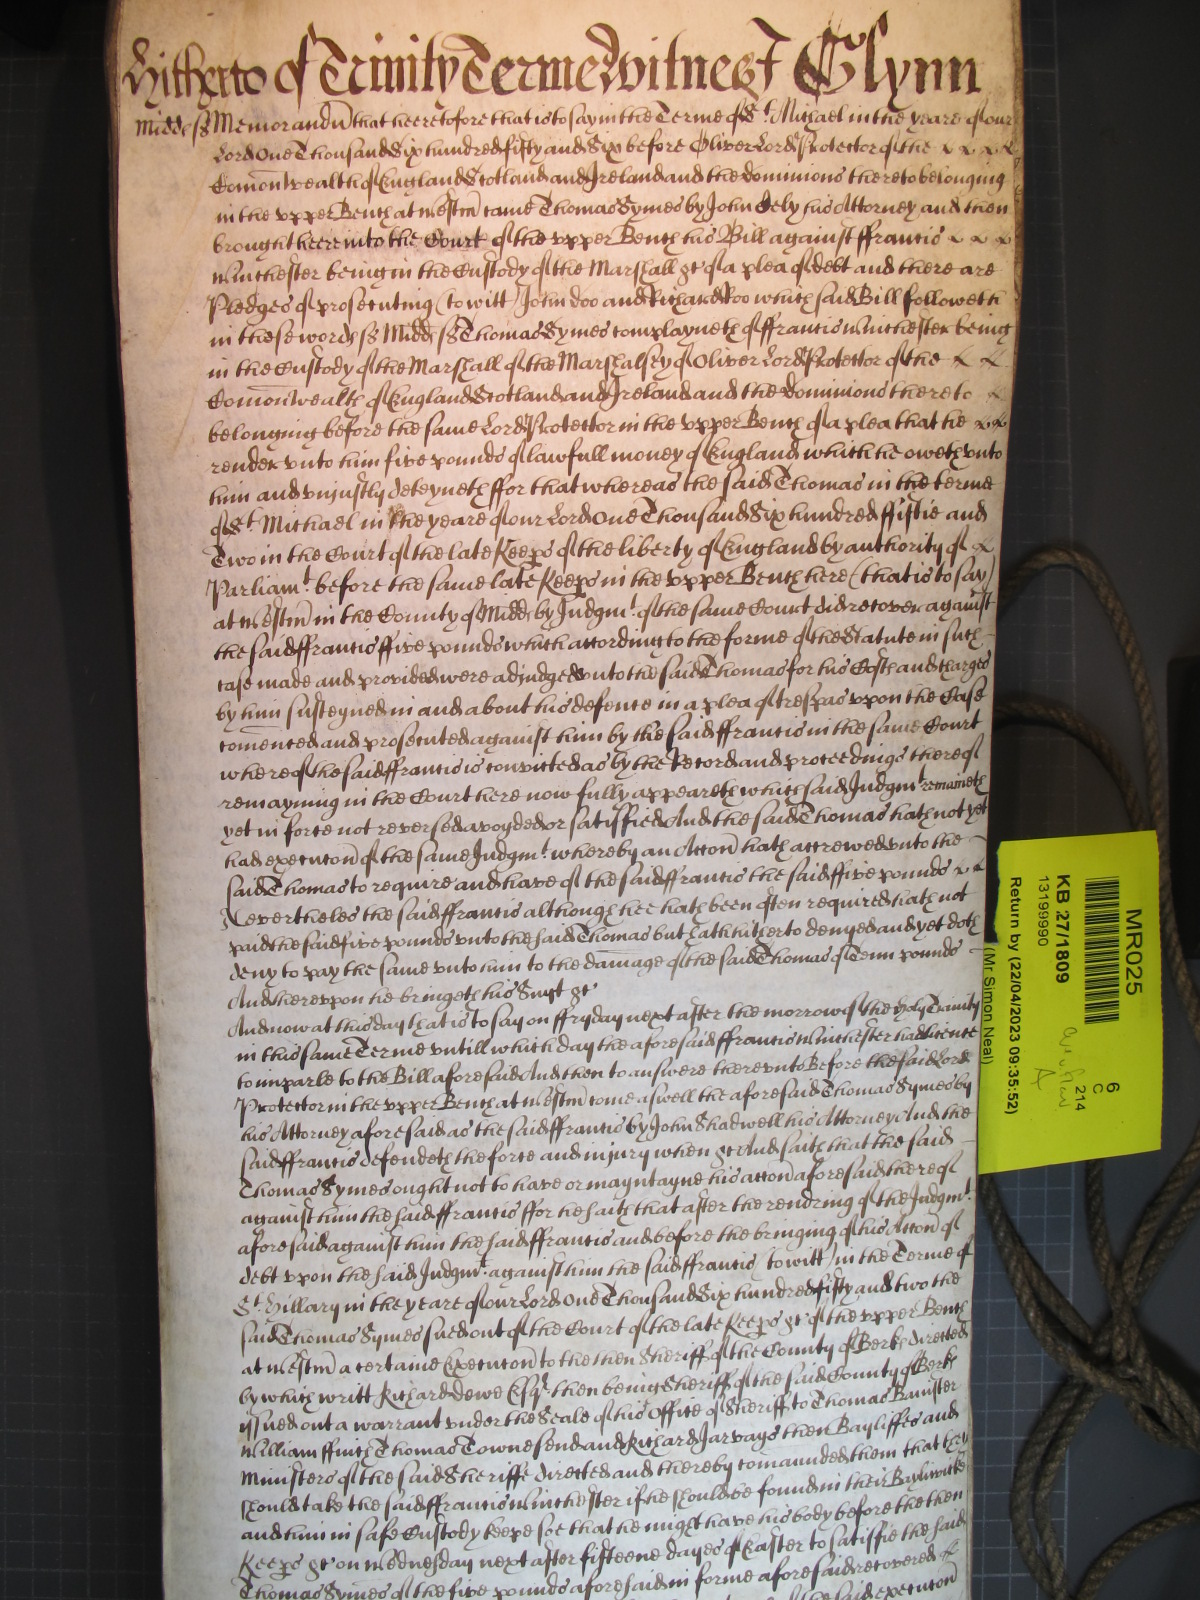 Hitherto of Trinity Terme Witnest Glynn
Midds ss Memorandũ that heeretofore that is to say in the Terme of St. Michael in the yeare of our
Lord One Thousand Six hundred fifty and Six before Oliver Lord Protector of the x x x x
Com̄onwealth of England Scotland and Ireland and the dominions thereto belonging
in the vpper Bench at Westm̄ came Thomas Symes by John Cely his Attorney and then
brought heere into the Court of the vpper Bench his Bill against ffrancis x x x
Winchester being in the Custody of the Marshall &c of a plea of debt and there are
Pledges of prosecuting (to witt) John doo and Richard Roo which said Bill followeth
in these words ss Midds ss Thomas Symes complayneth of ffrancis Winchester being
in the Custody of the Marshall of the Marshalsey of Oliver Lord Protector of the x x
Com̄onwealth of England Scotland and Ireland and the dominions thereto x
belonging before the same Lord Protector in the vpper Bench of a plea that he x x
render vnto him five pounds of lawfull money of England which he oweth vnto
him and vniustly deteyneth ffor that whereas the said Thomas in the terme
of St. Michael in the yeare of our Lord One Thousand Six hundred ffiftie and
Two in the Court of the late Keeps of the liberty of England by authority of x
Parliamt. before the same late Keeps in the vpper Bench here (that is to say)
at Westm̄ in the County of Midds by Judgmt. of the same Court did recover against
the said ffrancis ffive pounds which according to the forme of the Statute in such
case made and provided were adjudged vnto the said Thomas for his Costs and charges
by him susteyned in and about his defence in a plea of trespas vpon the Case
com̄enced and prosecuted against him by the said ffrancis in the same Court
whereof the said ffrancis is convicted as by the Record and proceedings thereof
remayning in the Court here now fully appeareth which said Judgmt. remaineth
yet in force not reversed avoyded or satisfied And the said Thomas hath not yet
had execucon̄ of the same Judgmt. whereby an Accon̄ hath accrewed vnto the
said Thomas to require and have of the said ffrancis the said ffive pounds x x
Nevertheles the said ffrancis although hee hath been often required hath not
paid the said five pounds vnto the said Thomas but hath hitherto denyed and yet doth
deny to pay the same vnto him to the dam̄age of the said Thomas of Tenn pounds
And herevpon he bringeth his Suyt &c
And now at this day that is to say on ffryday next after the morrow of the holy Trinity
in this same Terme vntill which day the aforesaid ffrancis Winchester had licence
to imparle to the Bill aforesaid And then to answere therevnto Before the said Lord
Protector in the vpper Bench at Westm̄ come aswell the aforesaid Thomas Symes by
his Attorney aforesaid as the said ffrancis by John Shadwell his Attorney And the
said ffrancis defendeth the force and iniury when &c And saith that the said
Thomas Symes ought not to have or mayntayne his accon̄ aforesaid thereof
against him the said ffrancis ffor he saith that after the rendring of the Judgmt.
aforesaid against him the said ffrancis and before the bringing of his Accon̄ of
debt vpon the said Judgmt. against him the said ffrancis (to witt) in the Terme of
St. Hillary in the yeare of our Lord One Thousand Six hundred fifty and two the
said Thomas Symes sued out of the Court of the late Keeps &c of the vpper Bench
at Westm̄ a certaine Execucon̄ to the then Sheriff of the County of Berks directed
by which writt Richard dewe Esqr. then being Sheriff of the said County of Berks
issued out a warrant vnder the Seale of his Office of Sheriff to Thomas Banister
William ffinch Thomas Townesend and Richard Jarvays then Bayliffes and
Ministers of the said Sheriffe directed and thereby com̄aunded them that they
should take the said ffrancis Winchester if he should be found in their Bayliwicke
and him in safe Custody keepe soe that he might have his body before the then
Keeps &c on Wednesday next after fifteene dayes of Easter to satisfie the said
Thomas Symes of the five pounds aforesaid in forme aforesaid recovered x
the said execucon̄
MR025
6
C
214
KB 27/1809
13199990
Return by (22/04/2023 09:35:52)
(Mr Simon Neal)